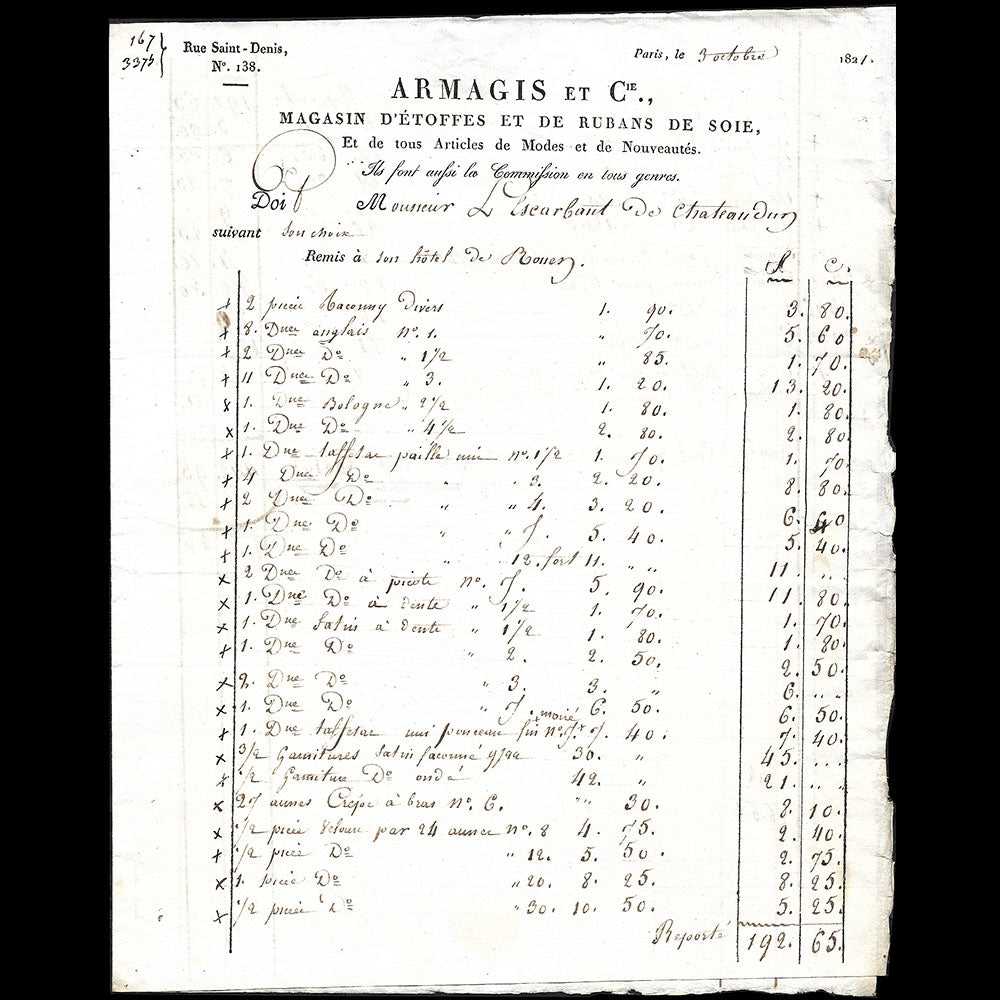 167
3375
Rue Saint-Denis,
N°. 138.
Paris, le 3 octobre 1821.
ARMAGIS ET CIE.,
MAGASIN D'ÉTOFFES ET DE RUBANS DE SOIE,
Et de tous Articles de Modes et de Nouveautés.
Ils font aussi la Commission en tous genres.
Doit Monsieur L'Escarbaut de Chateaudun
suivant son choix
Remis à son hôtel de Rouen.
f. c.
x 2 pièce divers 1. 90. 3. 80.
x 8. Dnes anglais n°. 1. " 70. 5. 60
x 2 Dnes D° " 1 1/2 " 85. 1. 70.
x 11 Dnes D° " 3. 1. 20. 13. 20.
x 1. Dne Bologne " 2 1/2 1. 80. 1. 80.
x 1. Dne D° " 4 1/2 2. 80. 2. 80
x 1. Dne taffetas paille uni n°. 1 1/2 1. 70. 1. 70
x 4 Dnes D° " " 3. 2. 20. 8. 80.
x 2 Dnes D° " " 4. 3. 20. 6. 40
x 1. Dne D° " " 7. 5. 40. 5. 40.
x 1. Dne D° " 12. fort 11. " " 11. " "
x 2 Dnes D° à picots n°. 7. 5. 90. 11. 80.
x 1. Dne D° à dents " 1 1/2 1. 70. 1. 70.
x 1. Dne Satin à dents " 1 1/2 1. 80. 1. 80
x 1. Dne D° " 2. 2. 50. 2. 50.
x 2. Dne D° " 3. 3. " 6. " "
x 1. Dne D° " 7. 6. 50. 6. 50.
x 1. Dne taffetas uni ponceau fin moiré n°. 7. 7. 40. 7. 40.
x 3/2 Garnitures Satin façonné gaze 30. " 45. " "
x 1/2 Garniture D° ondé 42. " 21. " "
x 27 aunes Crêpe à bras n°. 6. " " 30. 8. 10.
x 1/2 pièce Velours par 24 aunes n°. 8 4. 75. 2. 40.
x 1/2 pièce D° " 12. 5. 50. 2. 75.
x 1. pièce D° " 20. 8. 25. 8. 25.
x 1/2 pièce D° " 30. 10. 50. 5. 25.
Reporté 192. 65.